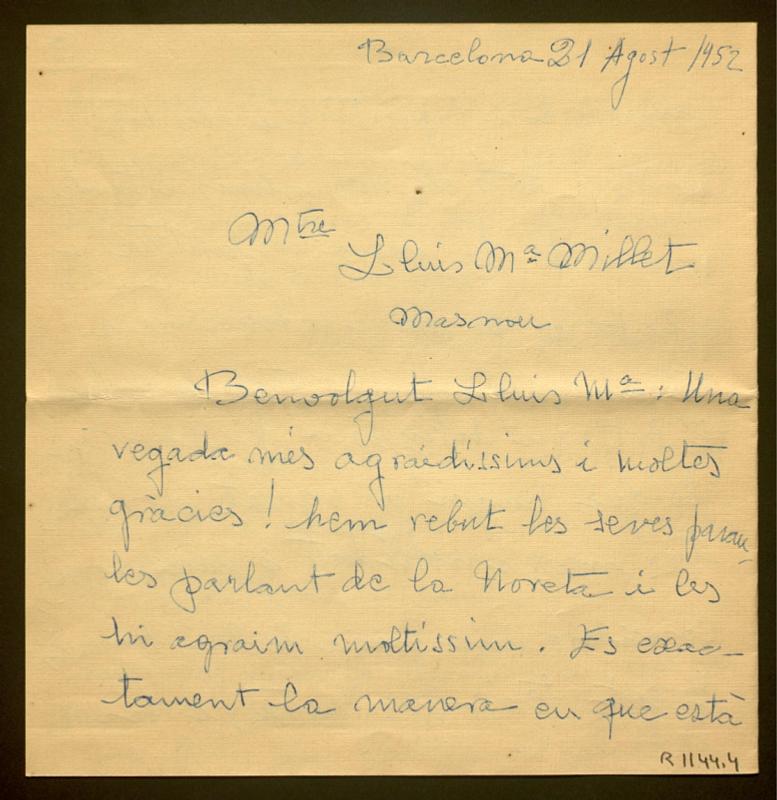 Barcelona 21 Agost 1952
Mtre
Lluis Mª Millet
Masnou
Benvolgut Lluis Mª: Una
vegada més agraidissims i moltes
gràcies! hem rebut les seves parau-
les parlant de la Noreta i les
hi agraim moltissim. Es exac-
tament la manera en que està
R 1144.4